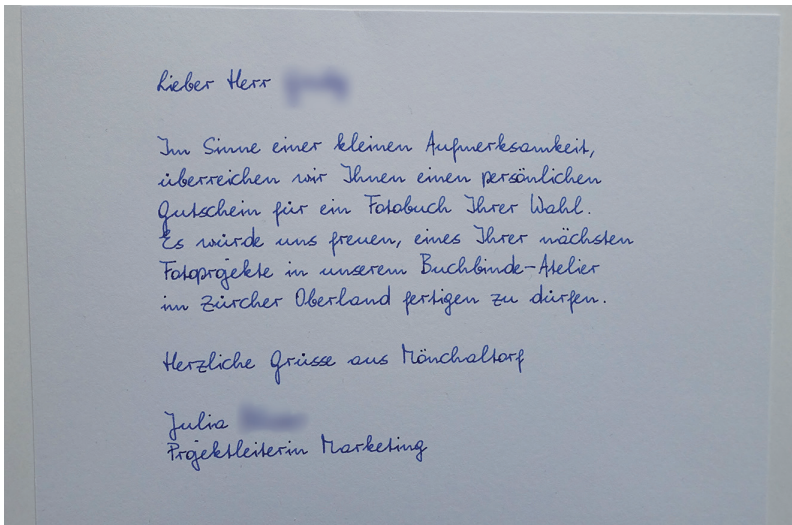 Lieber Herr
Im Sinne einer kleinen Aufmerksamkeit,
überreichen wir Ihnen einen persönlichen
Gutschein für ein Fotobuch Ihrer Wahl.
Es würde uns freuen, eines Ihrer nächsten
Fotoprojekte in unserem Buchbinde-Atelier
im Zürcher Oberland fertigen zu dürfen.
Herzliche Grüsse aus Mönchaltorf
Julia
Projektleiterin Marketing